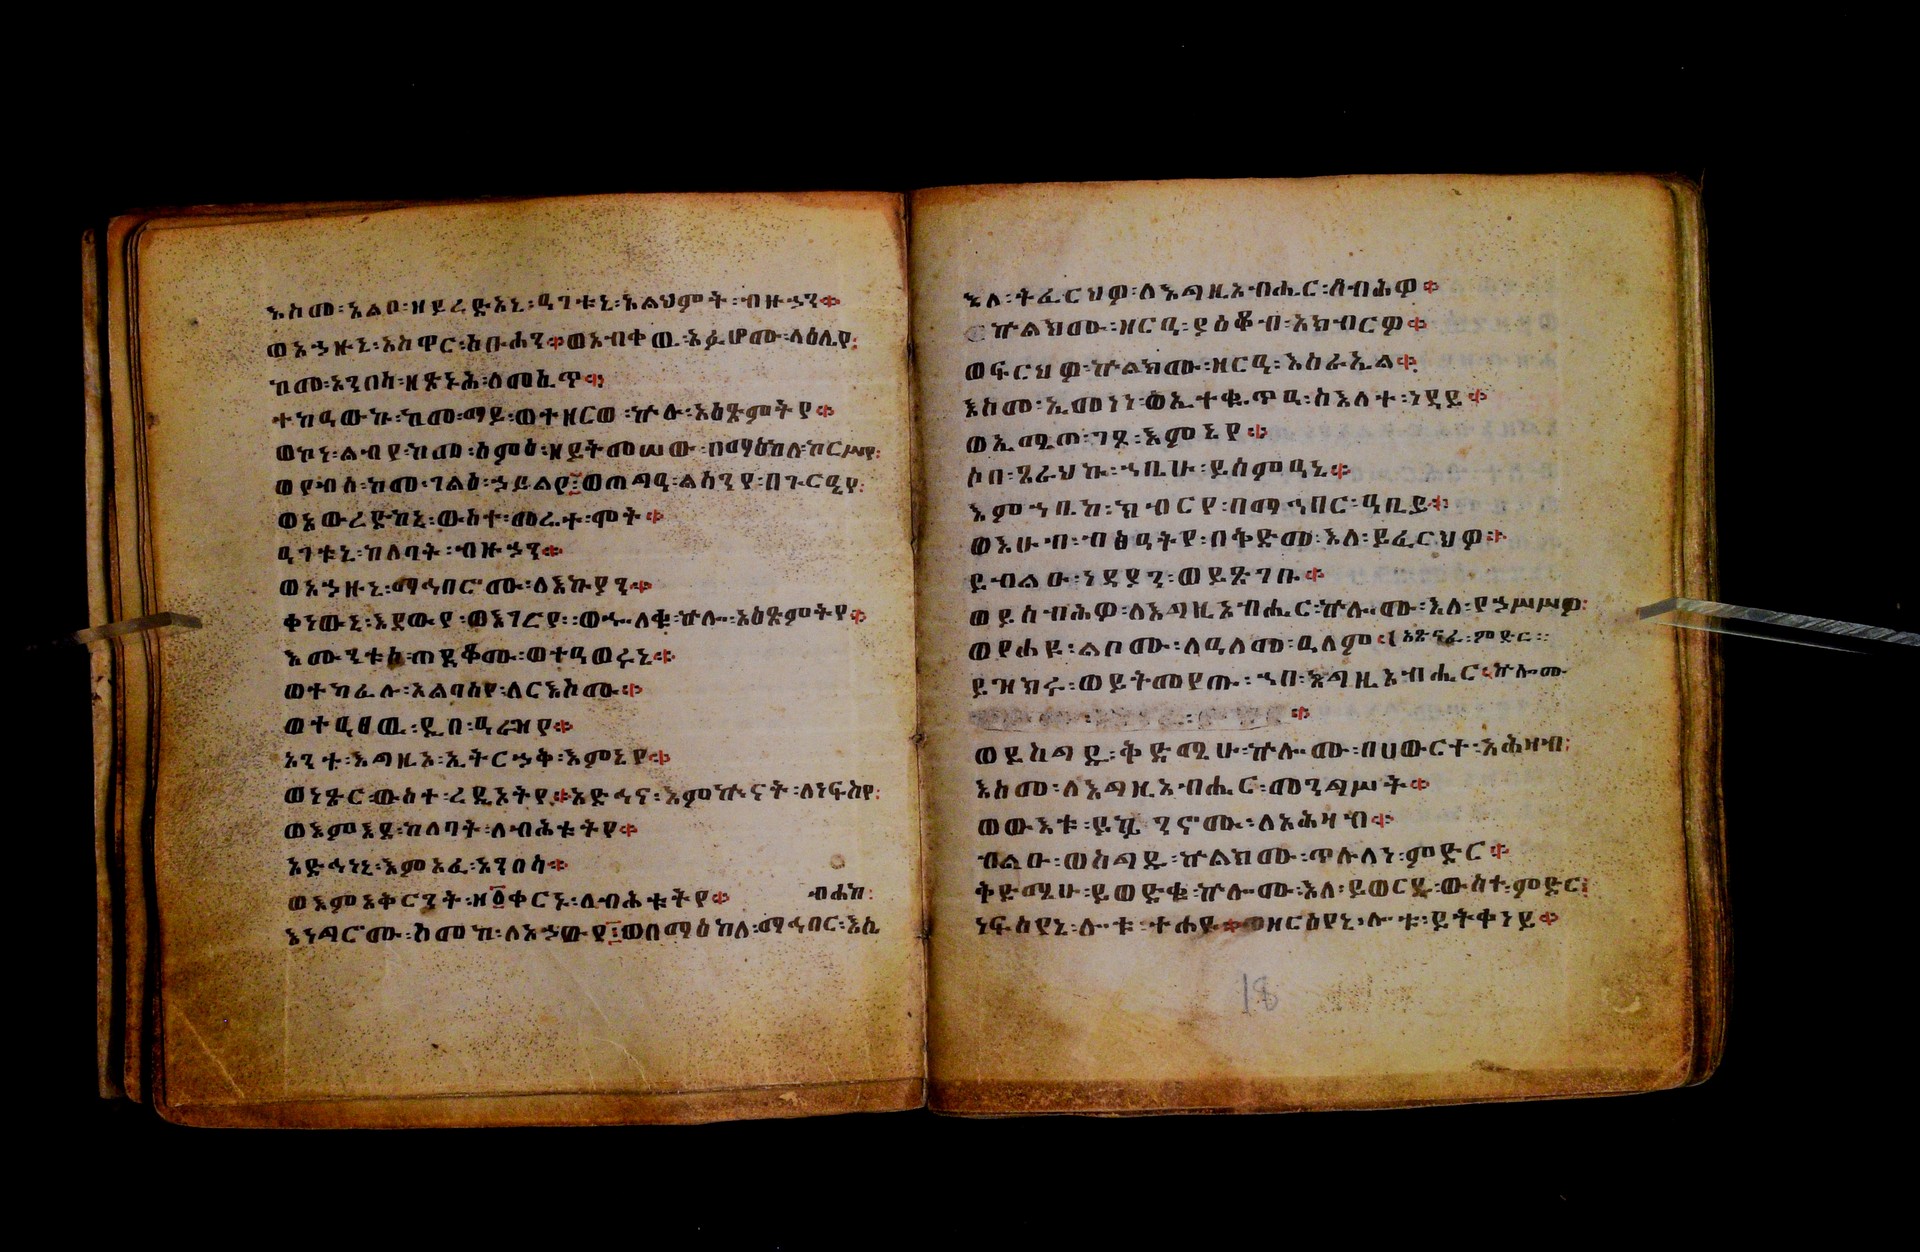 እስመ፡አልቦ፡ዘይረድአኒ፡ዓገቱኒ፡አልህምት፡ብዙኃን፨
ወአኃዙኒ፡አስዋር፡ስቡሐን፨ወአብቀዉ፡አፉሆሙ፡ላዕሌየ፡
ከመ፡አንበሳ፡ዘጽኑሕ፡ለመሲጥ፨
ተከዓውኩ፡ከመ፡ማይ፡ወተዘርወ፡ኵሉ፡አዕጽምትየ፨
ወኮነ፡ልብየ፡ከመ፡ሰምዕ፡ዘይትመሠው፡በማዕከለ፡ከርሥየ፡
ወየብሰ፡ከመ፡ገልዕ፡ኃይልየ፨ወጠግዓ፡ልሳንየ፡በጉርዔየ፡
ወአውረድከኒ፡ውስተ፡መሬተ፡ሞት፨
ዓገቱኒ፡ከለባት፡ብዙኃን፨
ወአኃዙኒ፡ማኅበሮሙ፡ለእኩያን፨
ቀነውኒ፡እደውየ፡ወእገርየ፡፡ወኈለቁ፡ኵሎ፡አዕጽምትየ፨
እሙንቱሰ፡ጠይቆሙ፡ወተዓወሩኒ፨
ወተካፈሉ፡አልባስየ፡ለርእሶሙ፨
ወተዓፀዉ፡ዲበ፡ዓራዝየ፨
አንተ፡እግዚኦ፡ኢትርኃቅ፡እምኔየ፨
ወነጽር፡ውስተ፡ረዲኦትየ፨አድኅና፡እምኵናት፡ለነፍስየ፡
ወእምእደ፡ከለባት፡ለብሕቱትየ፨
አድኅነኒ፡እምአፈ፡አንበሳ፨
ወእምአቅርንት፡ዘ፩ቀርኑ፡ለብሕቱትየ፨
ብሐከ፡
እነግሮሙ፡ስመከ፡ለአኃውየ፨ወበማዕከለ፡ማኅበር፡እሴ
እለ፡ትፈርህዎ፡ለእግዚአብሔር፡ሰብሕዎ፨
ኵልክሙ፡ዘርዓ፡ያዕቆብ፡አክብርዎ፨
ወፍርህዎ፡ኵልክሙ፡ዘርዓ፡እስራኤል፨
እስመ፡ኢመነነ፡ወኢተቈጥዓ፡ስእለተ፡ነዳይ፨
ወኢሜጠ፡ገጾ፡እምኔየ፨
ሶበ፡ጸራህኩ፡ኀቤሁ፡ይሰምዓኒ፨
እምኀቤከ፡ክብርየ፡በማኅበር፡ዓቢይ፨
ወእሁብ፡ብፅዓትየ፡በቅድመ፡እለ፡ይፈርህዎ፨
ይብልዑ፡ነዳያን፡ወይጽገቡ፨
ወይሴብሕዎ፡ለእግዚአብሔር፡ኵሎሙ፡እለ፡የኃሥሥዎ፡
ወየሐዩ፡ልቦሙ፡ለዓለመ፡ዓለም፨አጽናፈ፡ምድር፡፡
ይዝክሩ፡ወይትመየጡ፡ኀበ፡እግዚአብሔር፡ኵሎሙ
ወይሰግዱ፡ቅድሜሁ፡ኵሎሙ፡በሀውርተ፡አሕዛብ፡
እስመ፡ለእግዚአብሔር፡መንግሥት፨
ወውእቱ፡ይኴንኖሙ፡ለአሕዛብ፨
ብልዑ፡ወስግዱ፡ኵልክሙ፡ጥሉላነ፡ምድር፨
ቅድሜሁ፡ይወድቁ፡ኵሎሙ፡እለ፡ይወርዱ፡ውስተ፡ምድር፡
ነፍስየኒ፡ሎቱ፡ተሐዩ፨ወዘርዕየኒ፡ሎቱ፡ይትቀነይ፨
18